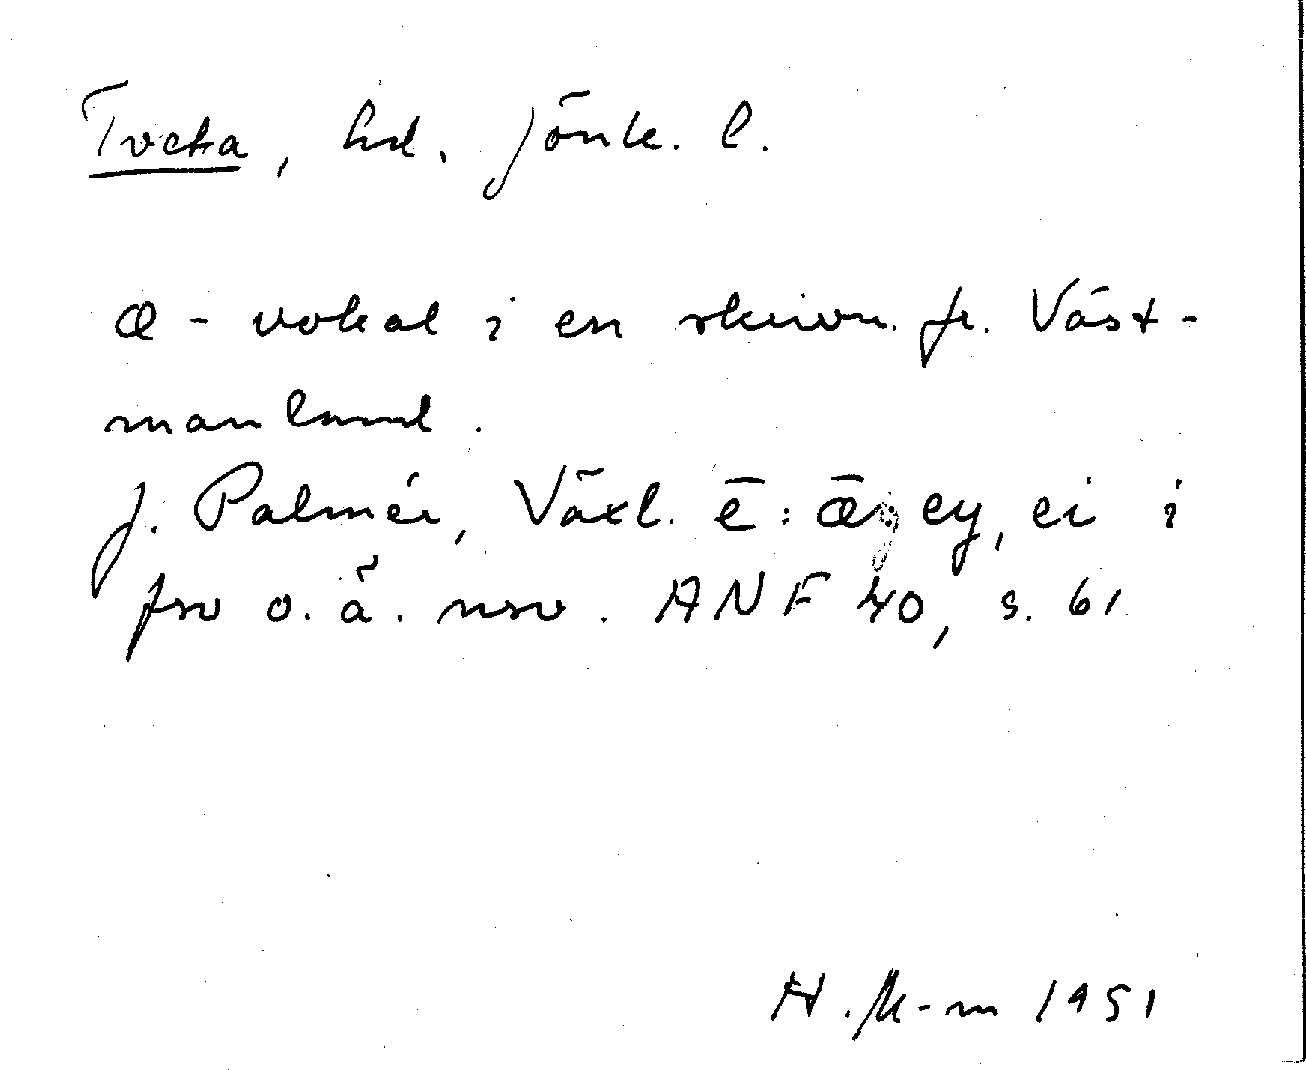 Tveta, hd. Jönk. l.
æ-vokal i en skrivn. fr. Väst-
manland.
J. Palmér, Växl. ē : ǣ, ey, ei i
fsv o. ä. nsv. ANF 40, s. 61
H. M-m 1951